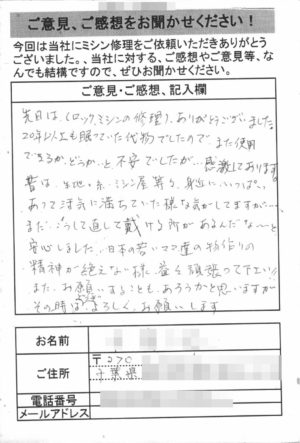 ご意見、ご感想をお聞かせください！
今回は当社にミシン修理をご依頼いただきありがとう
ございました。、当社に対する、ご感想やご意見等、な
んでも結構ですので、ぜひお聞かせください。
ご意見・ご感想、記入欄
先日は、(ロックミシンの修理)、ありがとうございました。
20年以上も眠っていた代物でしたので、また使用
できるか、どうか…と不安でしたが…感激しております。
昔は、生地・糸・ミシン屋等々、身近にいっぱい
あって活気に満ちていた様な気がしてますが…
まだ、こうして直して戴ける所があるんだな〜と
安心しました。日本の若いママ達の物作りの
精神が絶えない様、益々頑張って下さい。
また、お願いすることも、あろうかと思いますが
その時は、よろしく、お願いします
お名前
ご住所
〒270
千葉県
電話番号
メールアドレス